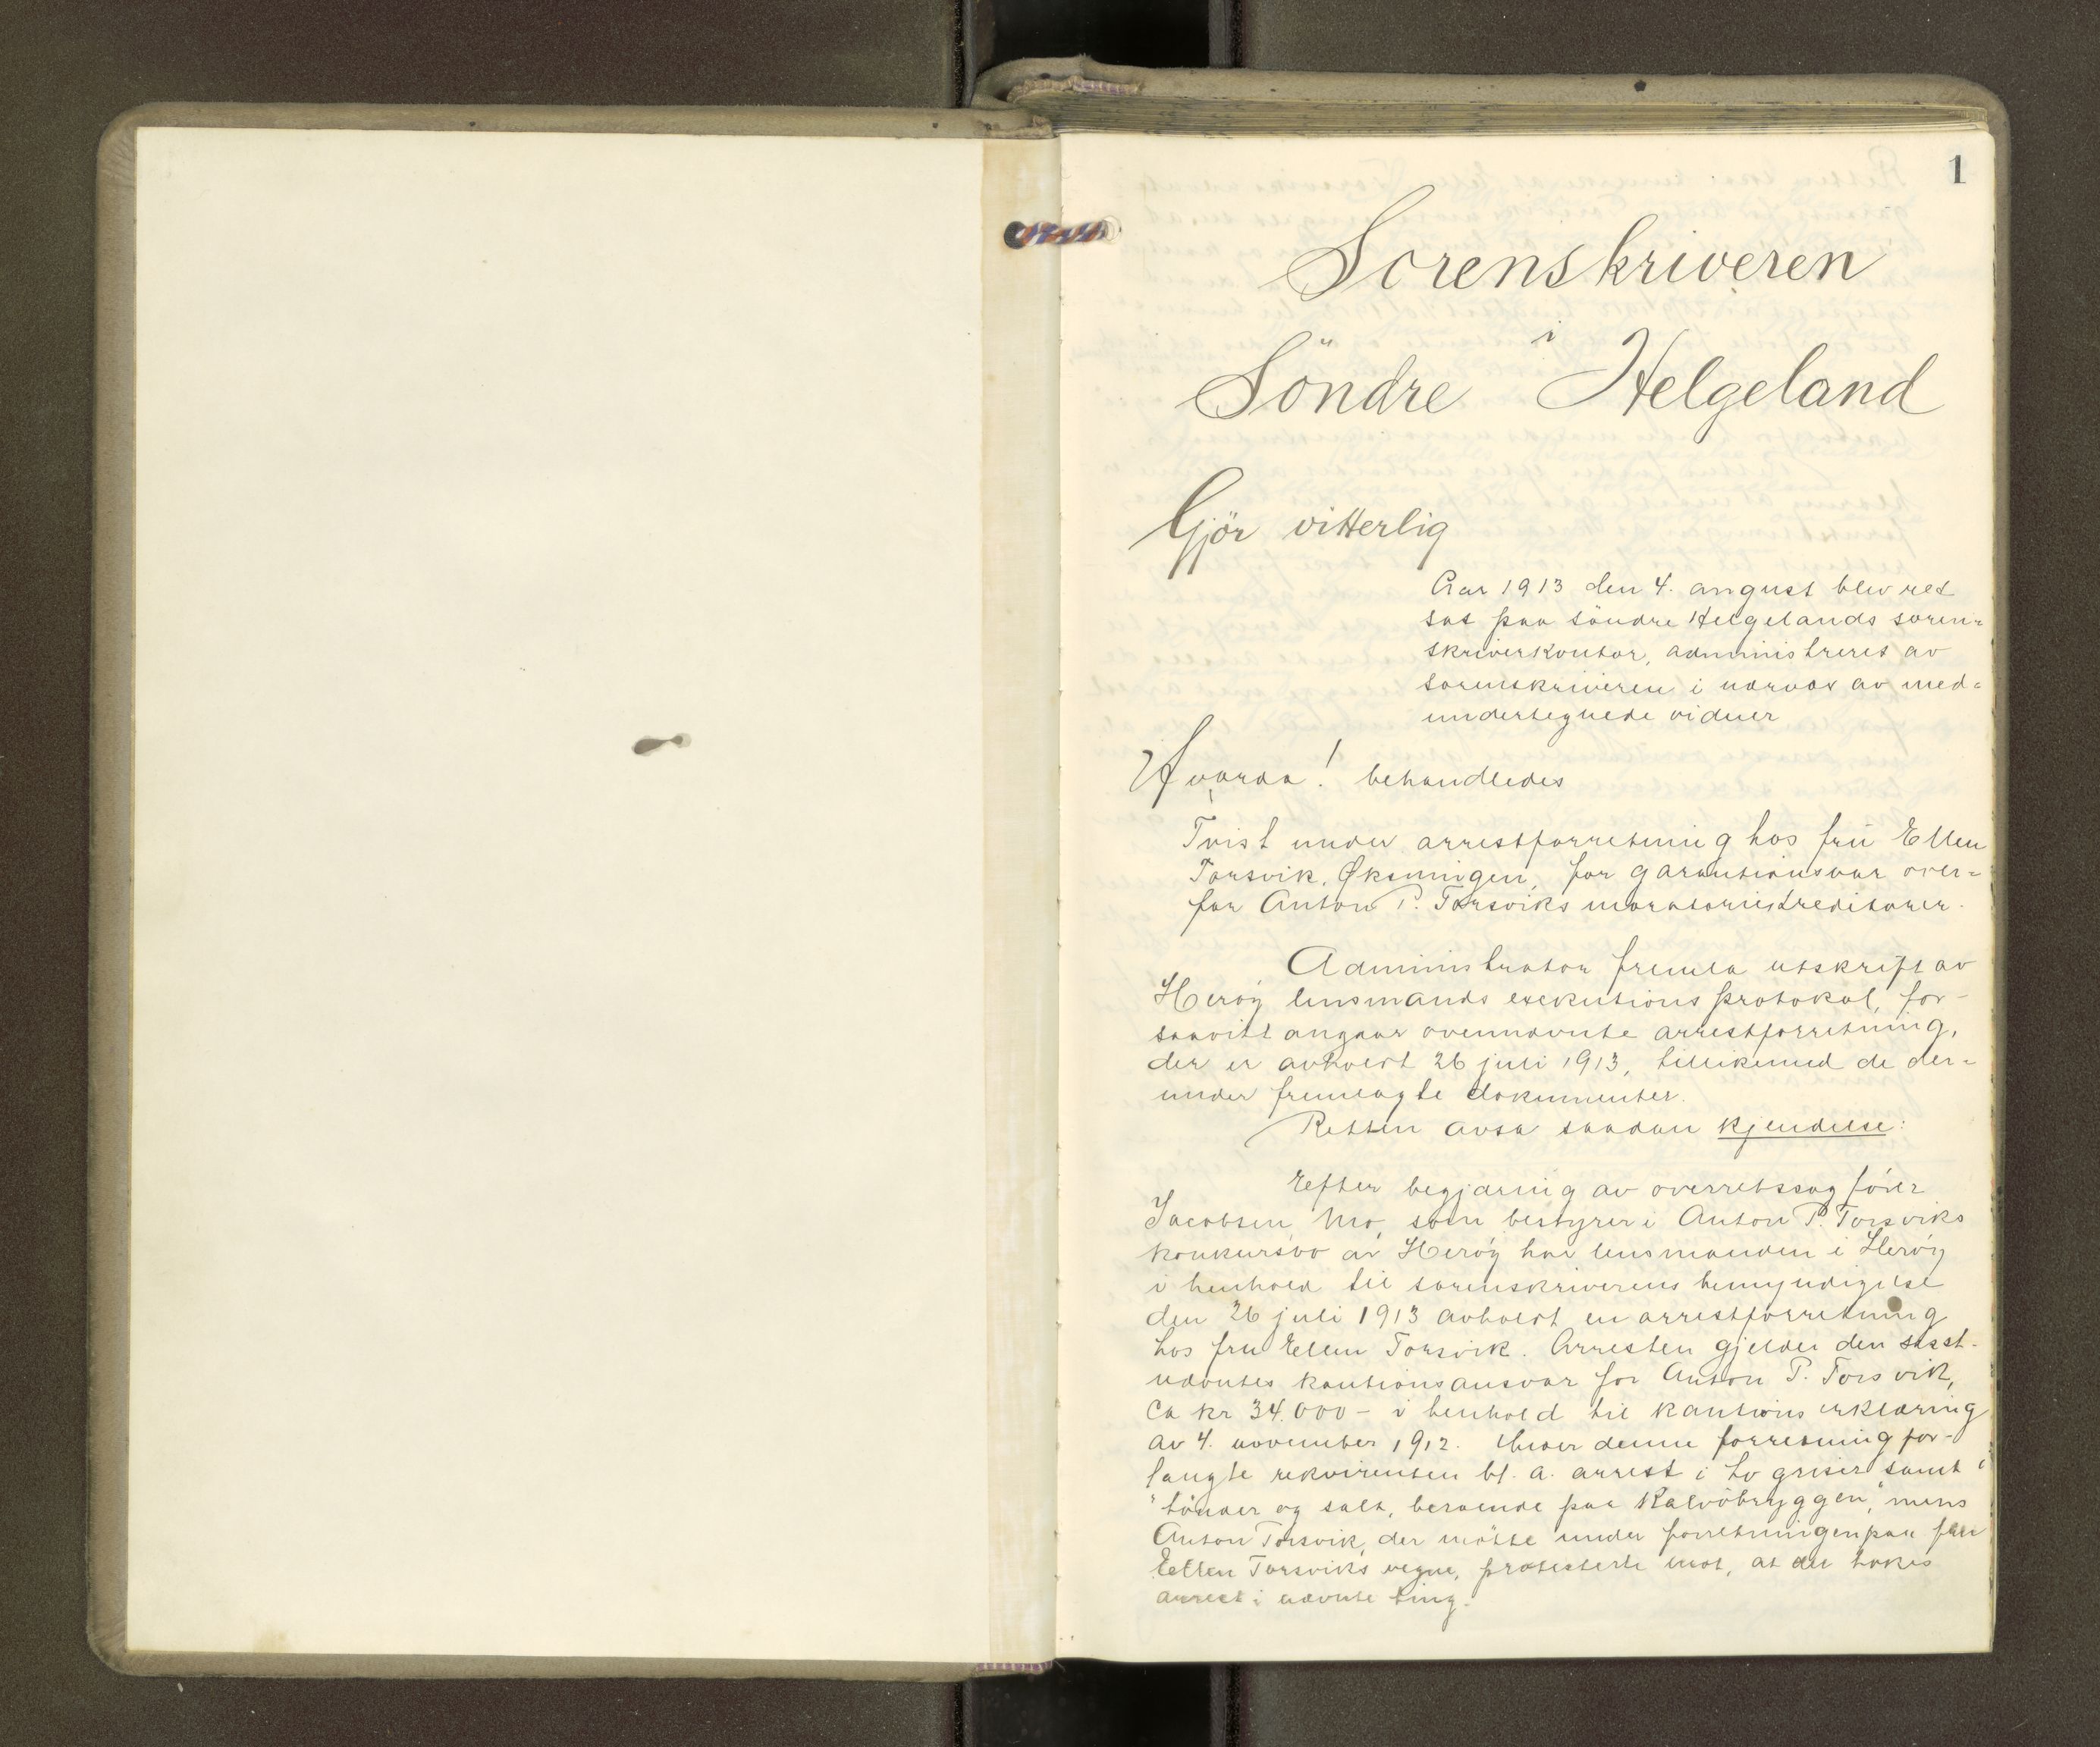 1
Sorenskriveren
i
Söndre Helgeland
Gjör vitterlig
Aar 1913 den 4. august blev ret
sat paa söndre Helgelands soren=
skriverkontor, administreret av
sorenskriveren i nærvær av med=
undertegnede vidner
Hvorda! behandledes
Tvist under arrestforretning hos fru Ellen
Torsvik, Øksningen, for garantiansvar over=
for Anton P. Torsviks moratoriekreditorer.
Administrator fremla utskrift av
Heröy lensmands exekutionsprotokol, for-
saavitt angaar ovennævnte arrestforretning,
der er avholdt 26 juli 1913, tillikemed de der=
under fremlagte dokumenter.
Retten avsa saadan kjendelse:
Efter begjæring av overretssagförer
Jacobsen, Mo, som bestyrer i Anton P. Torsviks
konkursbo av Heröy har lensmanden i Heröy
i henhold til sorenskriverens bemyndigelse
den 26 juli 1913 avholdt en arrestforretning
hos fru Ellen Torsvik. Arresten gjelder den sisst-
nævntes kautionsansvar for Anton P. Torsvik,
Ca kr 34.000 - i henhold til kautionserklæring
av 4. november 1912. Under denne forretning for-
langte rekvirenten bl. a. arrest i to griser samt i
"tönder og salt, beroende paa Kalvöbryggen," mens
Anton Torsvik, der mötte under forretningen paa fru
Ellen Torsviks vegne, protesterte mot, at der tokes
arrest i nævnte ting.